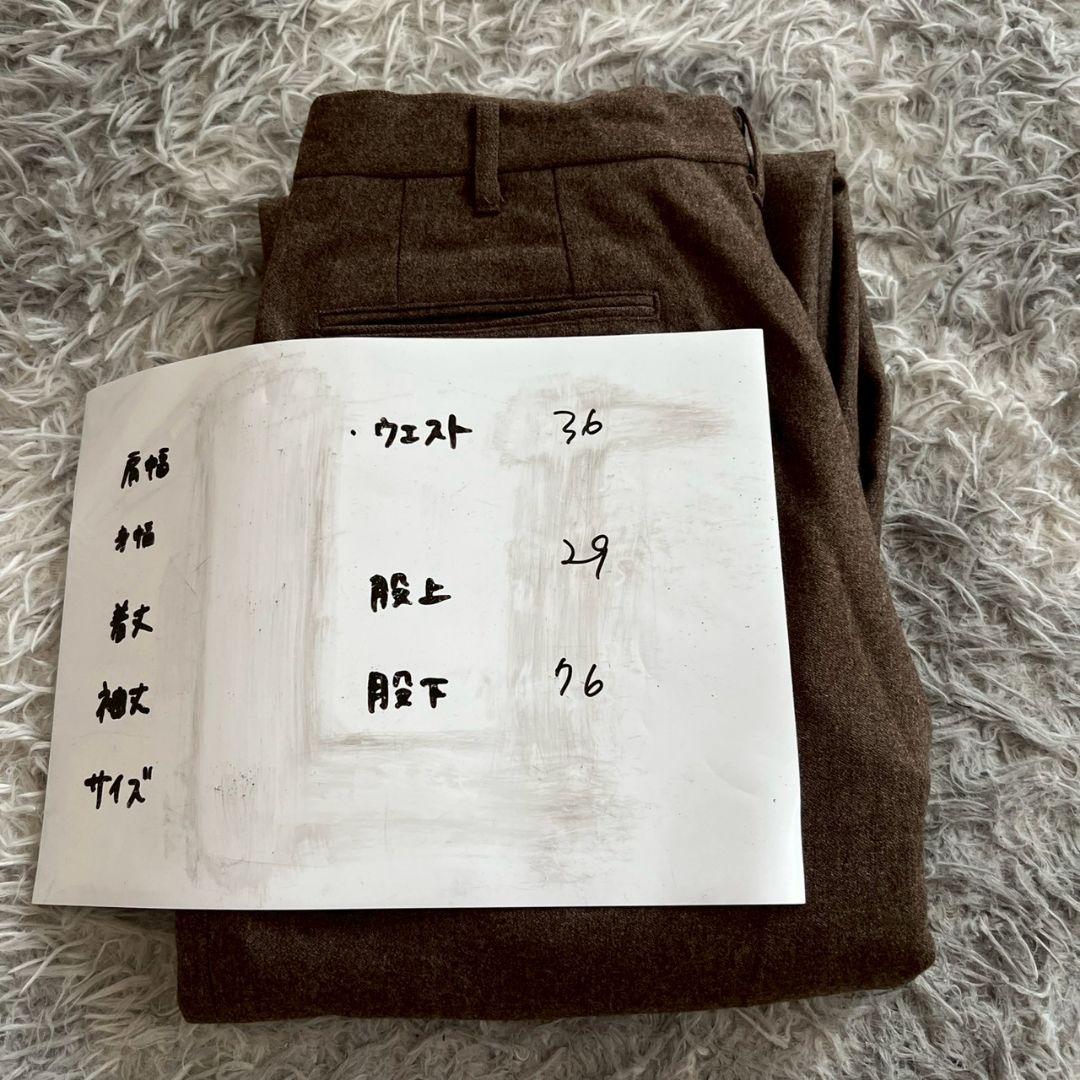 肩幅
身幅
着丈
袖丈
サイズ
・ウエスト 36
股上 29
股下 76